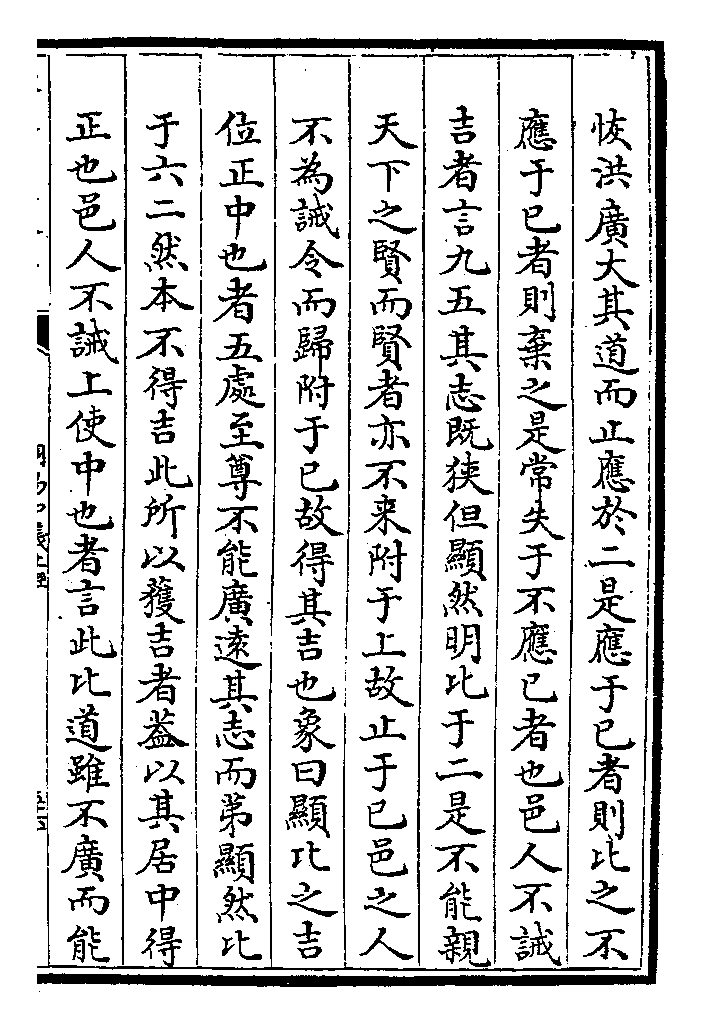 恢洪廣大其道而止應於二是應于已者則比之不
應于已者則棄之是常失于不應已者也邑人不誡
吉者言九五其志既狹但顯然明比于二是不能親
天下之賢而賢者亦不来附于上故止于已邑之人
不為誡令而歸附于已故得其吉也象曰顯比之吉
位正中也者五處至尊不能廣逺其志而苐顯然比
于六二然本不得吉此所以獲吉者葢以其居中得
正也邑人不誡上使中也者言此比道雖不廣而能